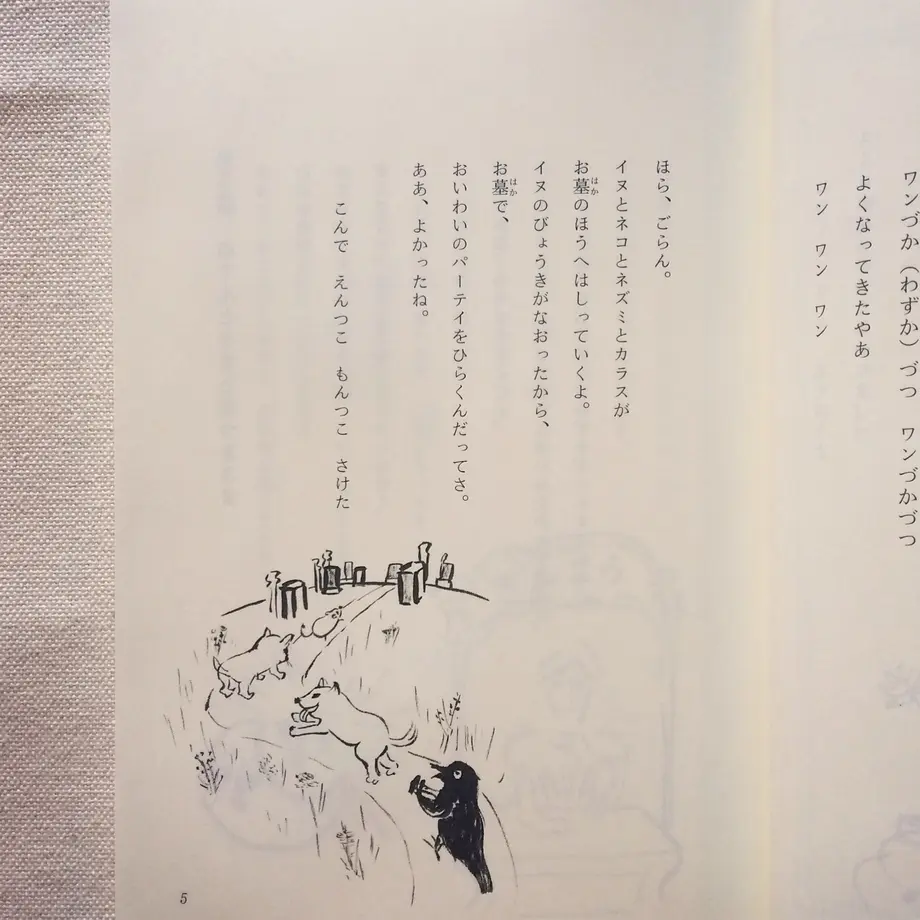 ワンづか（わずか）づつ　ワンづかづつ
よくなってきたやあ
ワン　ワン　ワン
ほら、ごらん。
イヌとネコとネズミとカラスが
お墓のほうへはしっていくよ。
イヌのびょうきがなおったから、
お墓で、
おいわいのパーテイをひらくんだってさ。
ああ、よかったね。
こんで　えんつこ　もんつこ　さけた
5